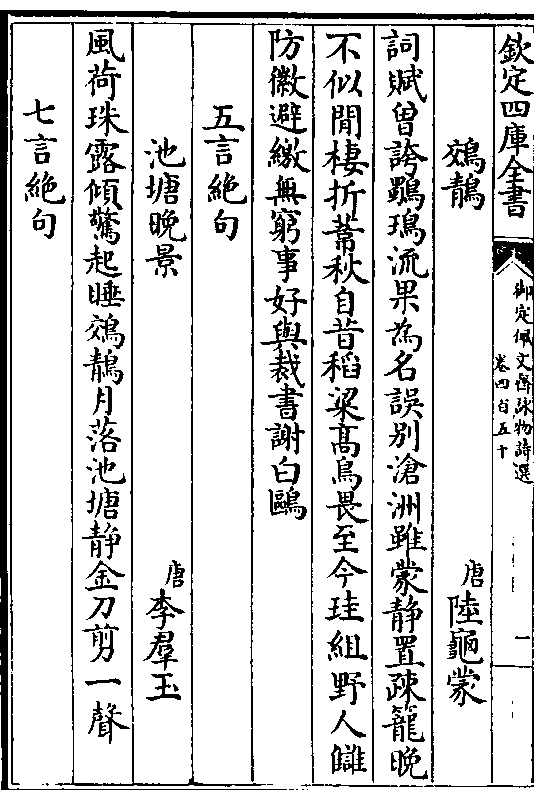 欽定四庫全書
御定佩文齋詠物詩選
卷四百五十
一
鵁鶄
唐 陸龜蒙
詞賦曾誇鸀鳿流果為名誤別滄洲雖蒙静置疎籠晚
不似閒棲折葦秋自昔稻粱高鳥畏至今珪組野人讎
防徽避繳無窮事好與裁書謝白鷗
五言絶句
池塘晚景
唐 李羣玉
風荷珠露傾驚起睡鵁鶄月落池塘静金刀剪一聲
七言絶句